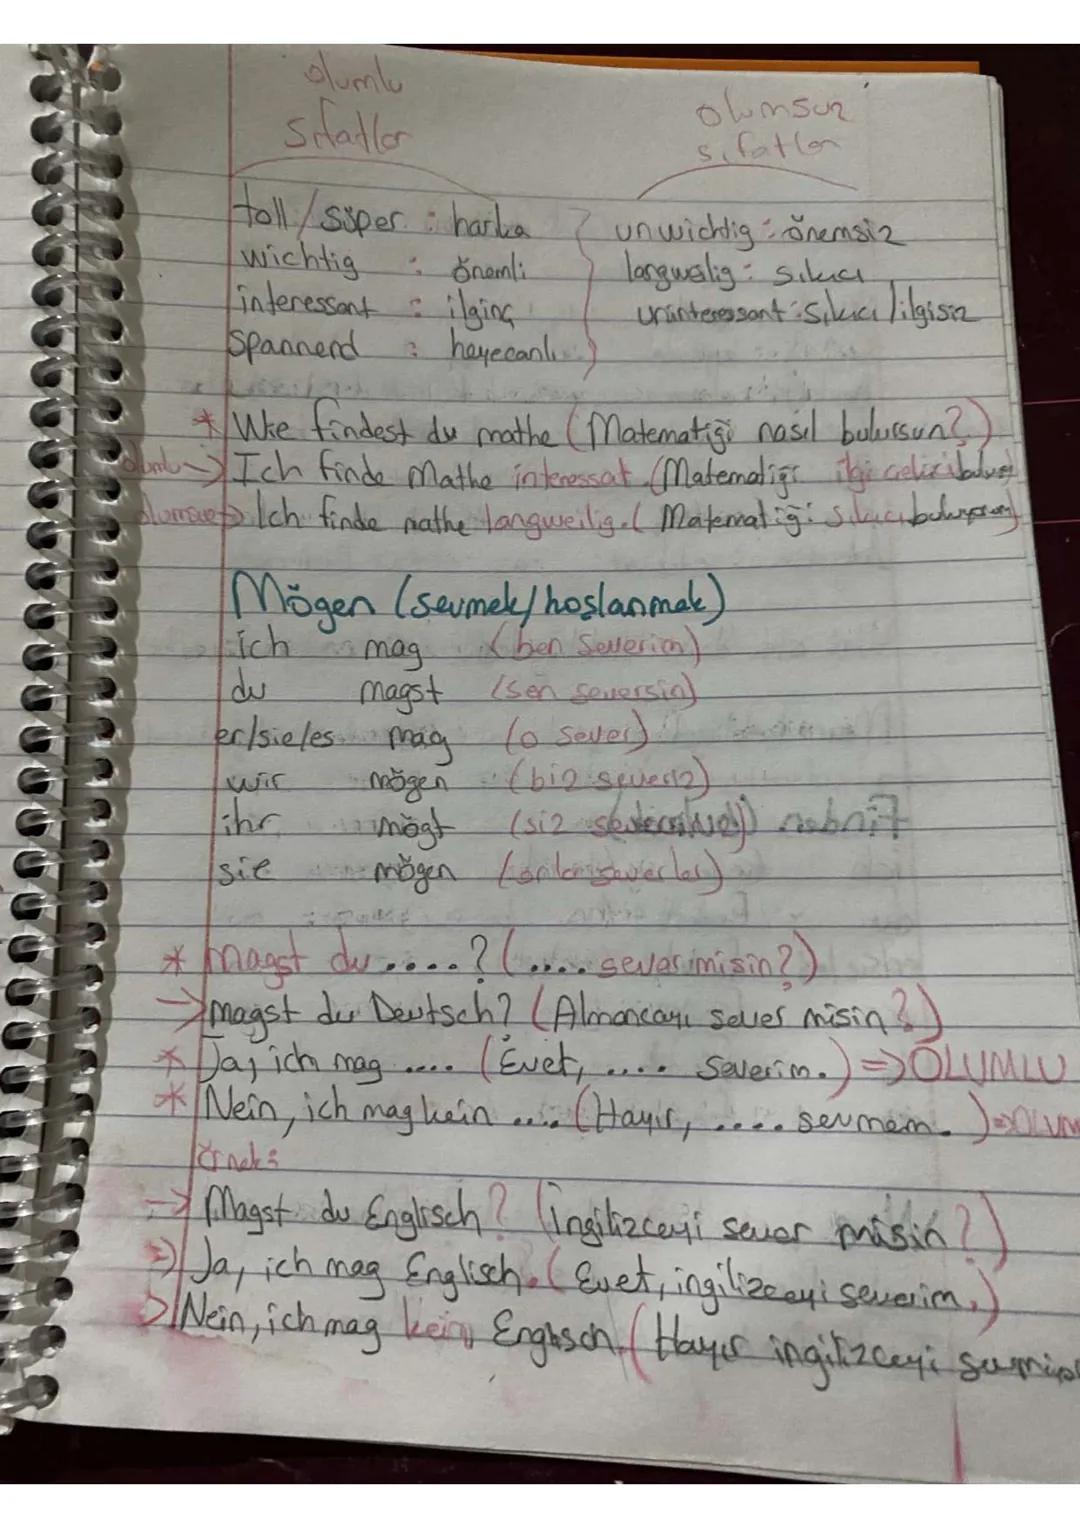 olumlu
sıfatlar
olumsuz
sıfatlar
toll / süper : harika
wichtig : önemli
interessant : ilginç
spannend : heyecanlı
unwichtig : önemsiz
langweilig : sıkıcı
uninteressant : sıkıcı / ilgisiz
* Wie findest du mathe (Matematiği nasıl bulursun?)
olumlu → Ich finde Mathe interessat. (Matematiği ilgi çekici
olumsuz → Ich finde mathe langweilig. ( Matematiği sıkıcı buluyorum)
Mögen (sevmek/hoşlanmak)
ich mag (ben severim)
du magst (sen seversin)
er/sie/es mag (o sever)
wir mögen (biz severiz)
ihr mögt (siz
sie mögen (onlar severler)
* magst du ....? (.... sever misin?)
→ magst du Deutsch? (Almancayı sever misin?)
* Ja, ich mag .... (Evet, .... severim.) => OLUMLU
* Nein, ich mag kein .... (Hayır, .... sevmem. ) =>
Örnek:
→ Magst du Englisch? (ingilizceyi sever misin?)
=> Ja, ich mag Englisch. ( Evet, ingilizceyi severim.)
> Nein, ich mag kein Englisch. ( Hayır ingilizceyi